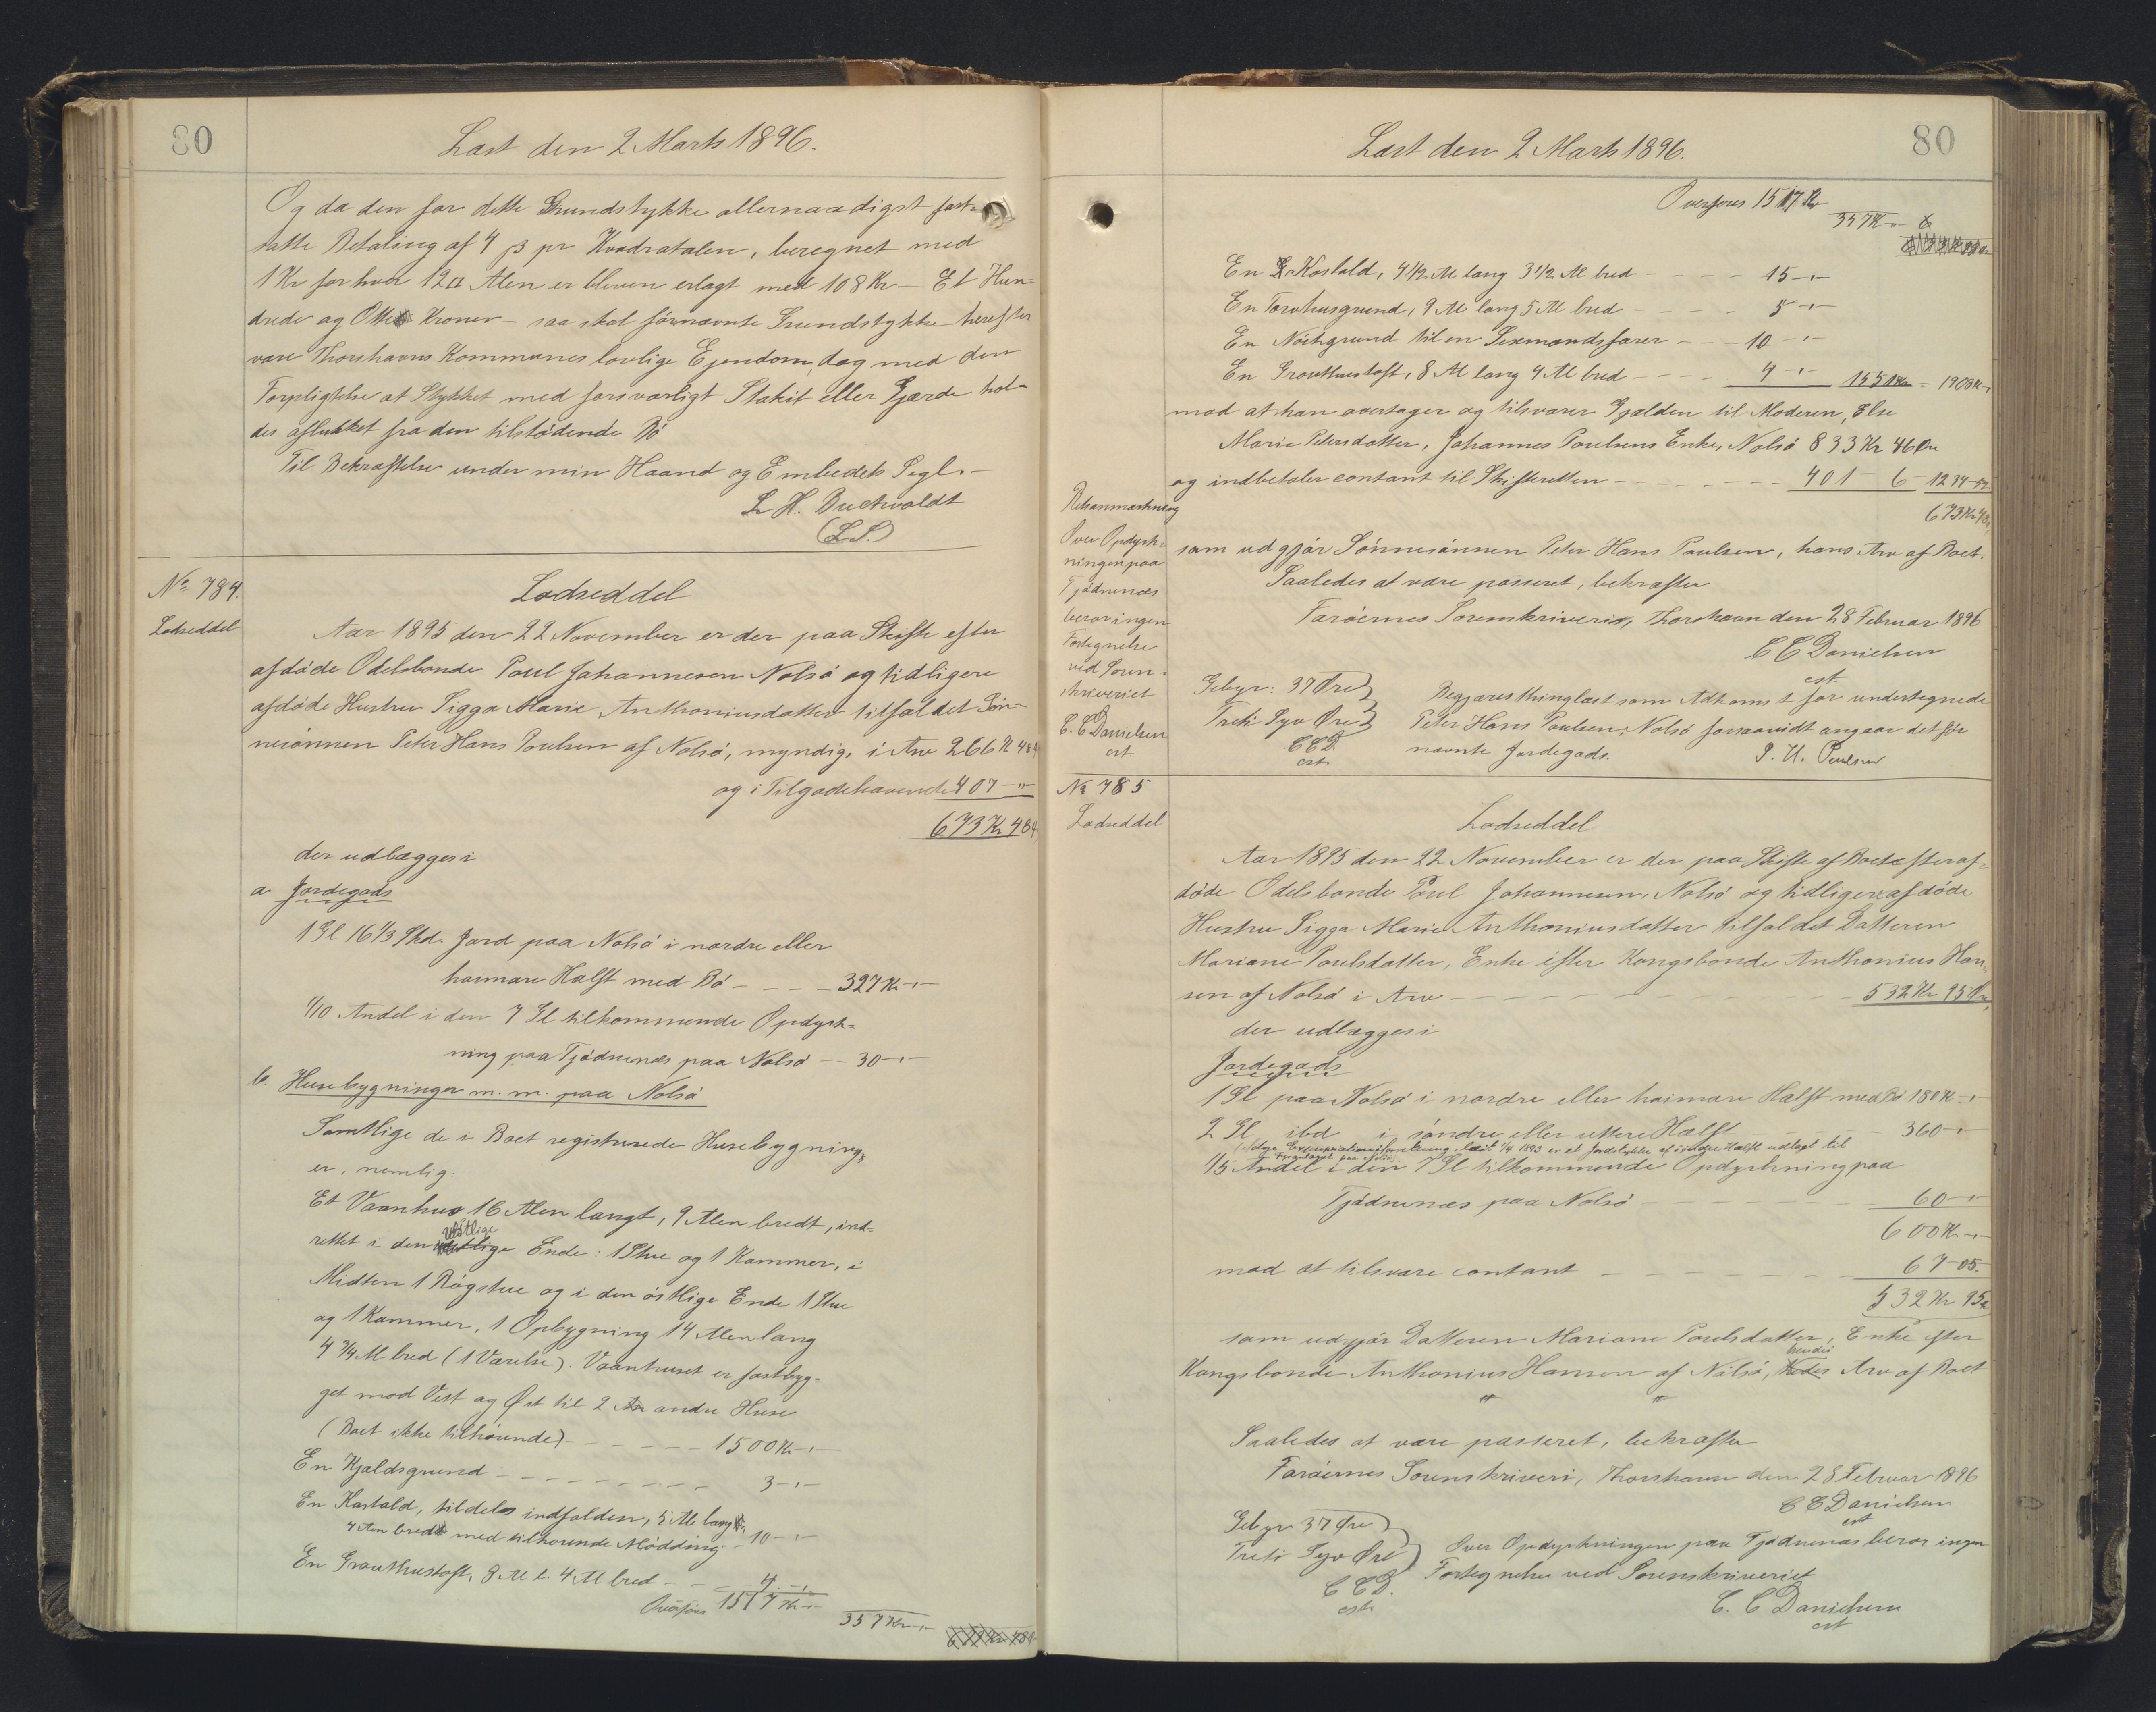 80
Læst den 2 Marts 1896.
Og da den for dette Grundstykke allernaadigst fast-
satte Betaling af 4 ß pr Kvadratalen, beregnet med
1 Kr for hver 12 □ Alen er bleven erlagt med 108 Kr — Et Hun-
drede og Otte Kroner — saa skal førnævnte Grundstykke herefter
være Thorshavns Kommunes lovlige Ejendom, dog med den
Forpligtelse at Stykket med forsvarligt Stakit eller Gjærde hol-
des aflukket fra den tilstødende Bø
Til Bekræftelse under min Haand og Embedets Segl.—
L. H. Buchvaldt
(L.S.)
No 784.
Lodseddel
Lodseddel
Aar 1895 den 22 November er der paa Skifte efter
afdøde Odelsbonde Poul Johannesen Nolsø og tidligere
afdøde Hustru Sigga Marie Anthoniusdatter tilfaldet Søn-
nesønnen Peter Hans Poulsen af Nolsø, myndig, i Arv 266 Kr 48
og i Tilgodehavende 407 — "
673 Kr 48
der udlægges i
a Jordegods
1 Gl 16 1/3 Skd. Jord paa Nolsø i nordre eller
haimare Halft med Bø - - - - 327 Kr - " -
1/10 Andel i den 7 Gl tilkommende Opdyrk-
ning paa Tjødnenæs paa Nolsø - - 30 - " -
b. Husebygninger m. m. paa Nolsø
Samtlige de i Boet registrerede Husebygning-
er, nemlig:
Et Vaanhus 16 Alen langt, 9 Alen bredt, ind-
vestlige
rettet i den Ende: 1 Stue og 1 Kammer, i
Midten 1 Røgstue og i den østlige Ende 1 Stue
og 1 Kammer, 1 Opbygning 14 Alen lang
4 3/4 Al bred (1 Værelse). Vaanhuset er fastbyg-
get mod Vest og Øst til 2 andre Huse
(Boet ikke tilhørende) - - - - - 1500 Kr - " -
En Kjældsgrund - - - - - - - 3 - " -
En Kostald, tildels indfalden, 5 Al lang
4 Alen bred med tilhørende Mødding - 10 - " -
En Grouthustoft, 8 Al l. 4 Al bred - - 4 - " -
Overføres 1517 Kr - " -
357 Kr - " -
80
Læst den 2 Marts 1896.
Overføres 1517 Kr
357 Kr - "
En Kostald, 4 1/2 Al lang 3 1/2 Al bred - - - - 15 - " -
En Torvhusgrund, 9 Al lang 5 Al bred - - - - 5 - " -
En Nöstgrund til en Sexmandsfarer - - - 10 - " -
En Grouthustoft, 8 Al lang 4 Al bred - - - - 4 - " - 1551 Kr = 1908 Kr "
mod at han overtager og tilsvarer Gjælden til Moderen, Else
Marie Petersdatter, Johannes Poulsens Enke, Nolsø 833 Kr 46 Øre
og indbetaler contant til Skifteretten - - - - - - - - 401 - 6 - 1234 - 52
673 Kr 48
som udgjør Sønnesønnen Peter Hans Poulsen, hans Arv af Boet.
Saaledes at være passeret, bekræfter
Færøernes Sorenskriveri, Thorshavn den 28 Februar 1896
C C Danielsen
cst.
Over Opdyrk-
ningen paa
Tjødnenæs
beror ingen
Fortegnelse
ved Soren-
skriveriet
C. C Danielsen
cst
Gebyr: 37 Øre
Treti Syv Øre
C C D.
cst.
Begjæres thinglæst som Adkomst for undertegnede
Peter Hans Poulsen, Nolsø forsaavidt angaar det før
nævnte Jordegods.
P. H. Poulsen
No 785
Lodseddel
Lodseddel
Aar 1895 den 22 November er der paa Skifte af Boet efter af-
døde Odelsbonde Poul Johannesen, Nolsø og tidligere afdøde
Hustru Sigga Marie Anthoniusdatter tilfaldet Datteren
Mariane Poulsdatter, Enke efter Kongsbonde Anthonius Han-
sen af Nolsø i Arv - - - - - - - - - 532 Kr 95 Øre
der udlægges i
Jordegods
1 Gl paa Nolsø i nordre eller haimare Halft med Bø 180 Kr - "
2 Gl ibd i søndre eller uttere Halft - - - - 360 - "
1/5 Andel i den 7 Gl tilkommende Opdyrkning paa
Tjødnenæs paa Nolsø - - - - - - 60 - "
600 Kr - "
mod at tilsvare contant - - - - - - 67 - 05.
532 Kr 95
som udgjør Datteren Mariane Poulsdatter, Enke efter
hendes
Kongsbonde Anthonius Hansen af Nolsø, Arv af Boet
" "
Saaledes at være passeret, bekræfter
Færøernes Sorenskriveri, Thorshavn den 28 Februar 1896
C C Danielsen
cst
Gebyr 37 Øre
Treti Syv Øre
C C D.
cst.
Over Opdyrkningen paa Tjødnenæs beror ingen
Fortegnelse ved Sorenskriveriet
C. C Danielsen
cst